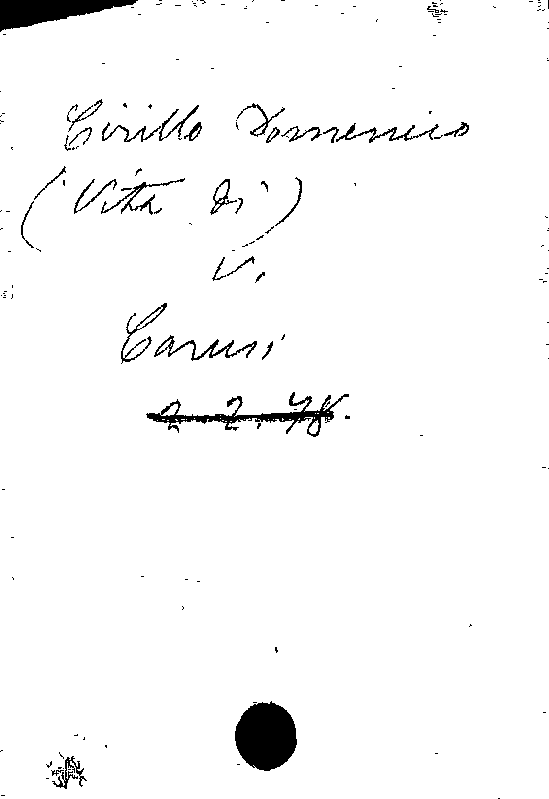 Cirillo Domenico
(Vita di)
V.
Carusi
2. 2. 48.